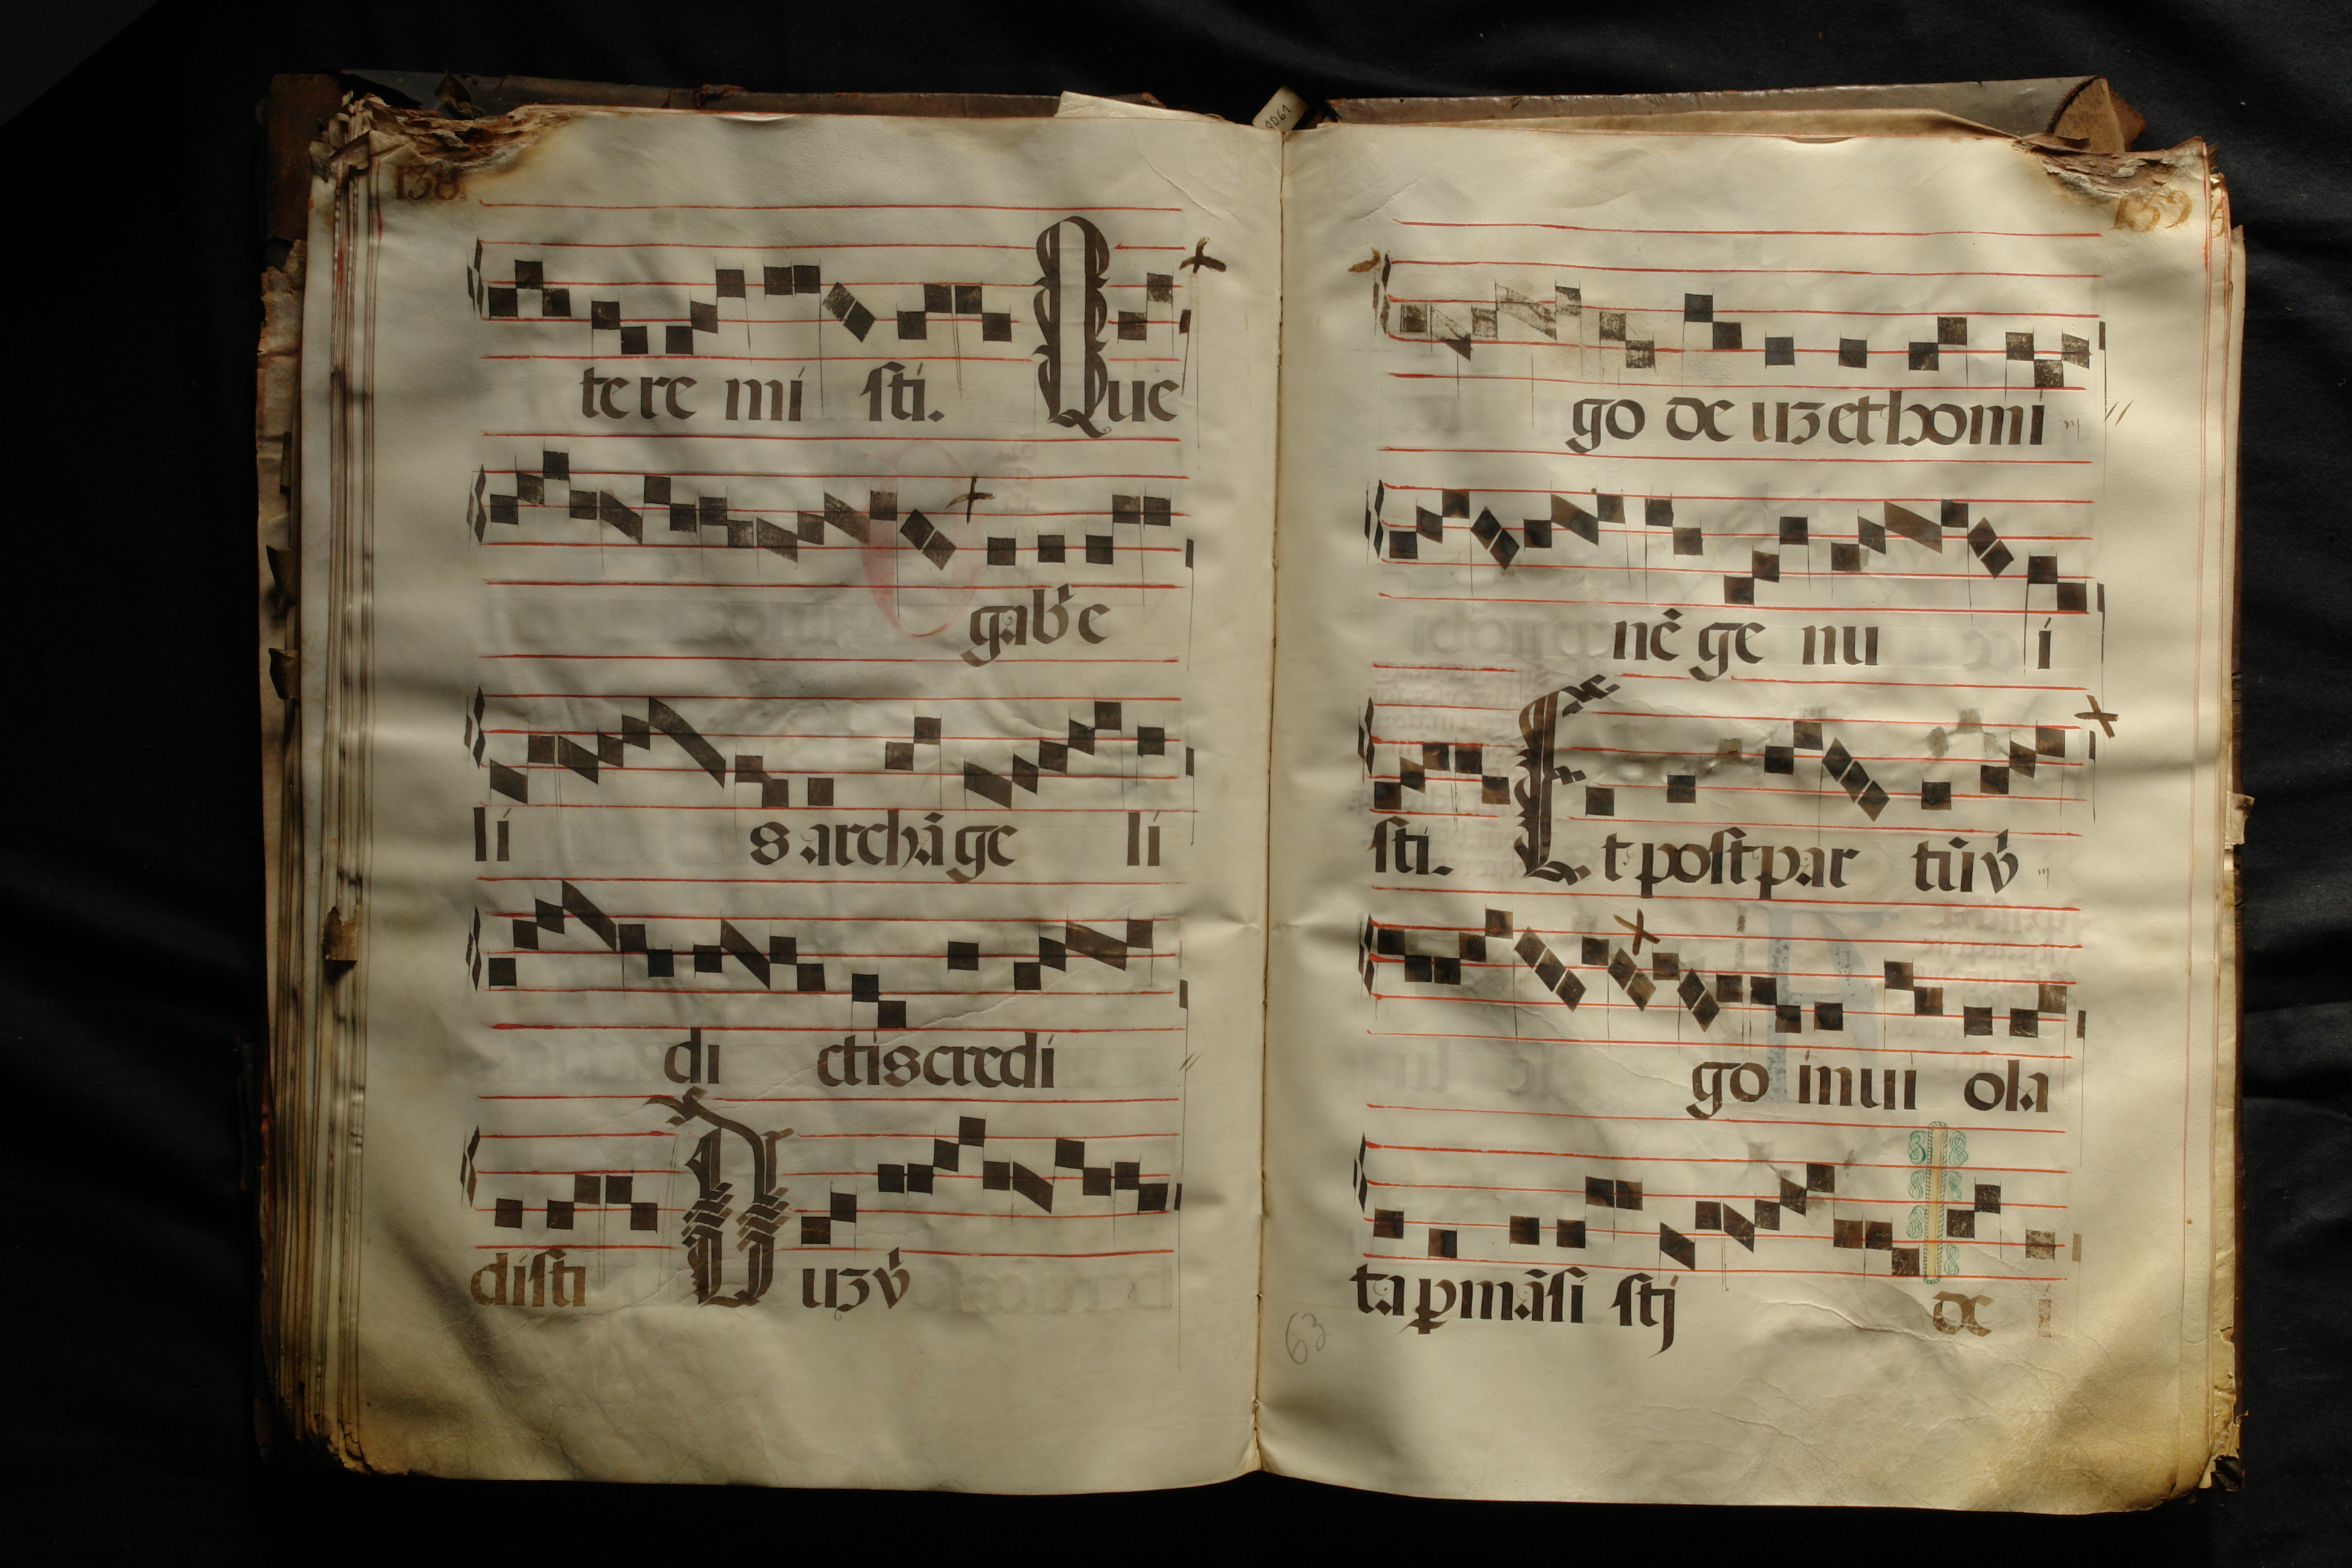 138
te re mi sti. Que
gabͥe
li s archãge li
di ctiscredi
disti Duʒvͥ
139
go deuʒethomi
nẽ ge nu i
sti. Et postpar tũvͥ
go inui ola
ta ꝑmãsi stj de i
63